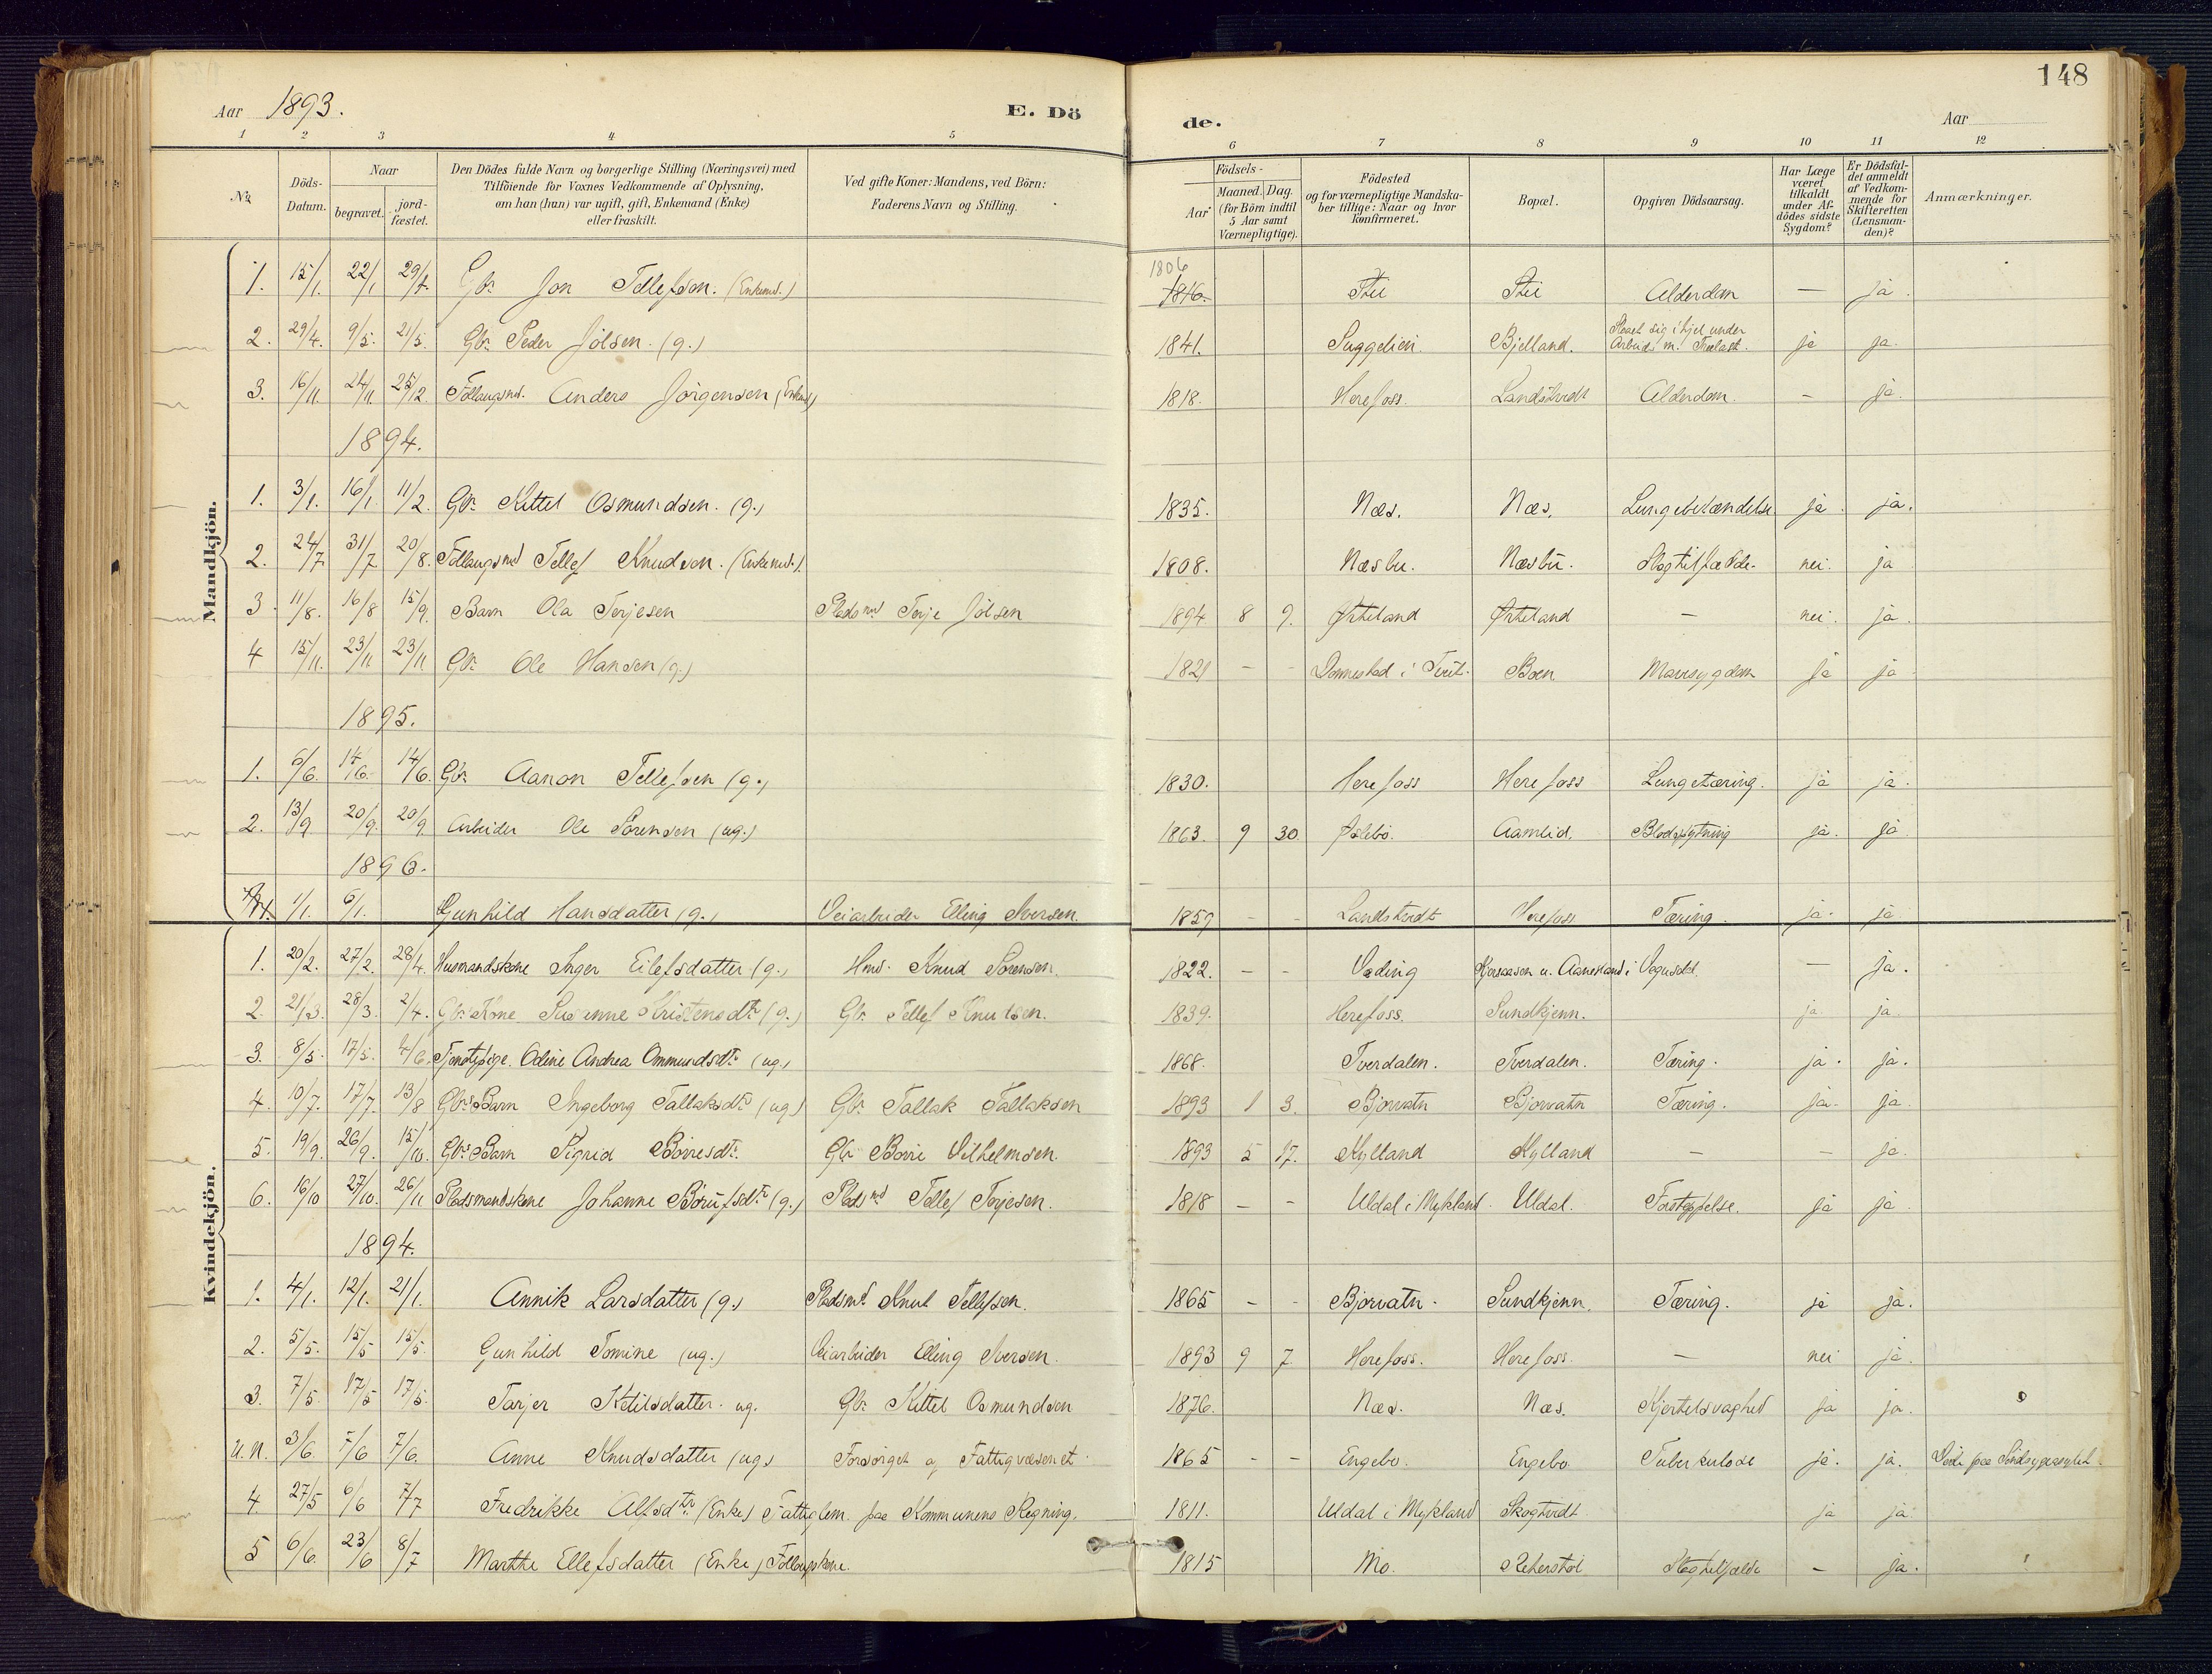 148
Aar 1893. E. Dö de. Aar
1 2 3 4 5 6 7 8 9 10 11 12
No. Döds-Datum. Naar begravet. jord-fæstet. Den Dödes fulde Navn og borgerlige Stilling (Næringsvei) med Tilföiende for Voxnes Vedkommende af Oplysning, om han (hun) var ugift, gift, Enkemand (Enke) eller fraskilt. Ved gifte Koner: Mandens, ved Börn: Faderens Navn og Stilling. Födsels- Aar Maaned. Dag. (for Börn indtil 5 Aar samt Værnepligtige). Födested og for værnepligtige Mandskaber tillige: Naar og hvor konfirmeret. Bopæl. Opgiven Dödsaarsag. Har Læge været tilkaldt under Afdödes sidste Sygdom? Er Dödsfaldet anmeldt af Vedkommende for Skifteretten (Lensmanden)? Anmærkninger.
Mandkjön.
1. 15/1. 22/1 Gbr. Jon Tellefsen. (Enkemd.) 1806 1816. Alderdom — ja.
2. 29/4. 9/5. 21/5. Gbr. Peder Jölsen. (g.) 1841. Bjelland. Slaaet sig ihjel under Arbeide m. Trælast. ja ja.
3. 16/11. 24/11. 25/12. Föllaugsmd. Anders Jörgensen (Enkemd.) 1818. Herefoss. Landstvedt Alderdom. - ja.
1894.
1. 3/1. 16/1. 11/2. Gbr. Kittel Osmundsen. (g.) 1835. Næs. Næs. Lungebetændelse ja. ja.
2. 24/7 31/7 20/8. Föllaugsmd Tellef Knudsen. (Enkemd.). 1808. Næsbu. Næsbu. Slagtilfælde. nei. ja
3. 11/8. 16/8 15/9. Barn Ola Terjesen Pladsmd Terje Jölsen 1894 8 9. — nei. ja.
4 15/11. 23/11 23/11 Gbr. Ole Hansen (g.) 1821 - - Boen Mavesygdom ja ja
1895.
1. 6/6. 14/6. 14/6. Gbr. Aanon Tellefsen (g.) 1830. Herefoss Herefoss Lungetæring. ja ja.
2. 13/9 20/9. 20/9. Arbeider Ole Sørensen (ug.) 1863. 9 30 Aamlid. Blodspytning ja. ja
1896.
1. 1/1. 6/1. Gunhild Hansdatter (g.) Veiarbeider Elling Iversen. 1859 - - Landstvedt Herefoss Tæring. ja. ja
Kvindekjön.
1. 20/2. 27/2. 28/4. Husmandskone Inger Eilefsdatter (g.) Hmd. Knud Sørensen. 1822. - - Væding u. Aaneland i Vegusdal. — ja.
2. 21/3. 28/3. 2/4. Gbr. Kone Susanne Kristensdtr. (g.) Gbr. Tellef Knutsen. 1839. Herefoss. Sundkjenn. ja. ja.
3. 8/5. 17/5. 4/6. Tjenestepige. Odine Andrea Ommundsdtr. (ug.) 1868. Tverdalen. Tverdalen. Tæring. ja. ja.
4. 10/7. 17/7. 13/8 Gbrs Barn Ingeborg Tallaksdtr. (ug.) Gbr. Tallak Tallaksen 1893 1 3. Bjorvatn Bjorvatn Tæring. ja. ja.
5. 19/9. 26/9. 15/10. Gbrs Barn Sigrid Börresdtr. Gbr Börre Vilhelmsen. 1893 5 17. Kylland Kylland — — ja.
6. 16/10 27/10. 26/11 Pladsmandskone Johanne (g.) Pladsmd Tellef Terjesen. 1818 - - Uldal i Mykland. Uldal. Forstoppelse. ja ja.
1894.
1. 4/1. 12/1. 21/1. Annik Larsdatter (g.) Pladsmd. Knut Tellefsen. 1865 - - Bjorvatn. Sundkjenn. Tæring. ja ja.
2. 5/5. 15/5 15/5. Gunhild Tomine (ug.) Veiarbeider Elling Iversen. 1893 9 7 Herefoss. Herefoss. — nei ja.
3. 7/5. 17/5 17/5. Tarjer Ketilsdatter. ug. Gbr. Kittel Osmundsen 1876. Næs. Næs. Kjertelsvaghed ja ja.
U.N. 3/6. 7/6 7/6. Anne Knudsdatter (ug.) Forsörget af Fattigvæsenet. 1865 - - Engebo. Engebo. Tuberkulose ja. ja. Döde paa Sindssygeasylet.
4. 27/5 6/6 7/7 Fredrikke Alfsdtr. (Enke) Fattiglem. paa Kommunens Regning. 1811. Uldal i Mykland Skogtvedt ja ja.
5 6/6. 23/6 8/7 Marthe Ellefsdatter (Enke) Föllaugskone. 1815 Mo. Slagtilfælde - ja.